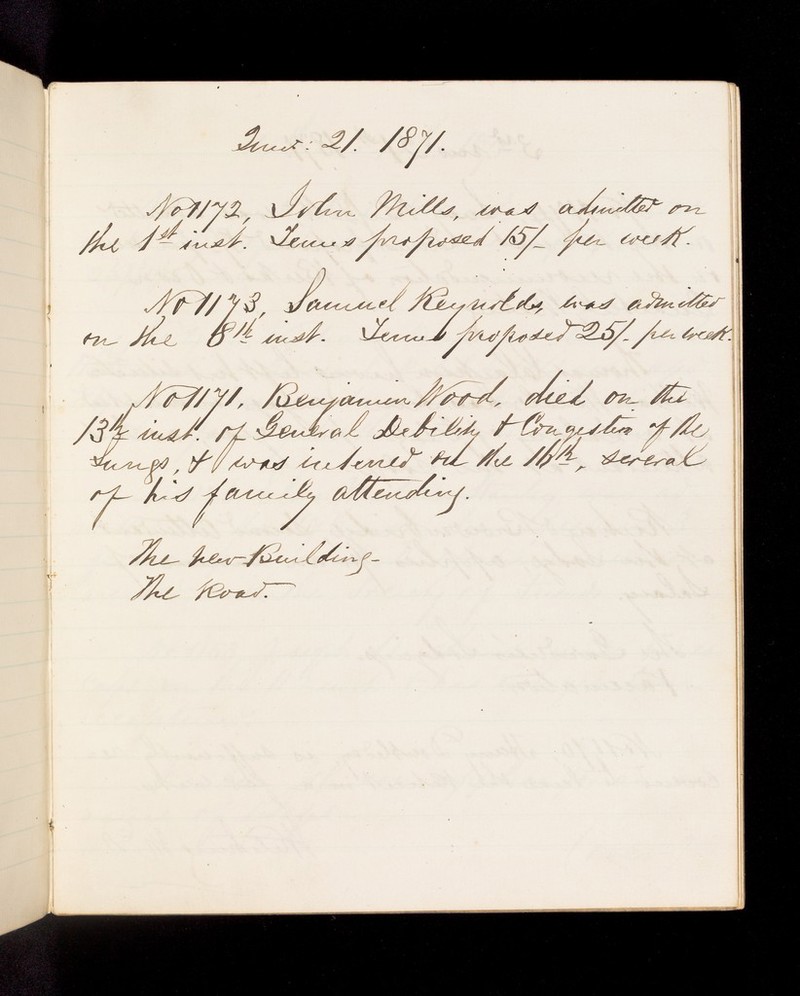 21. 1871.
No 1172, John Mills, was admitted on
the 1st inst. Terms proposed 15/- per week.
No 1173, Samuel Reynolds, was admitted
on the 8th inst. Terms proposed 25/- per week.
No 1171. Benjamin Wood, died on the
13th inst. of General Debility & Congestion of the
Lungs, & was interred on the 16th, several
of his family attending.
The new Building-
The Road.